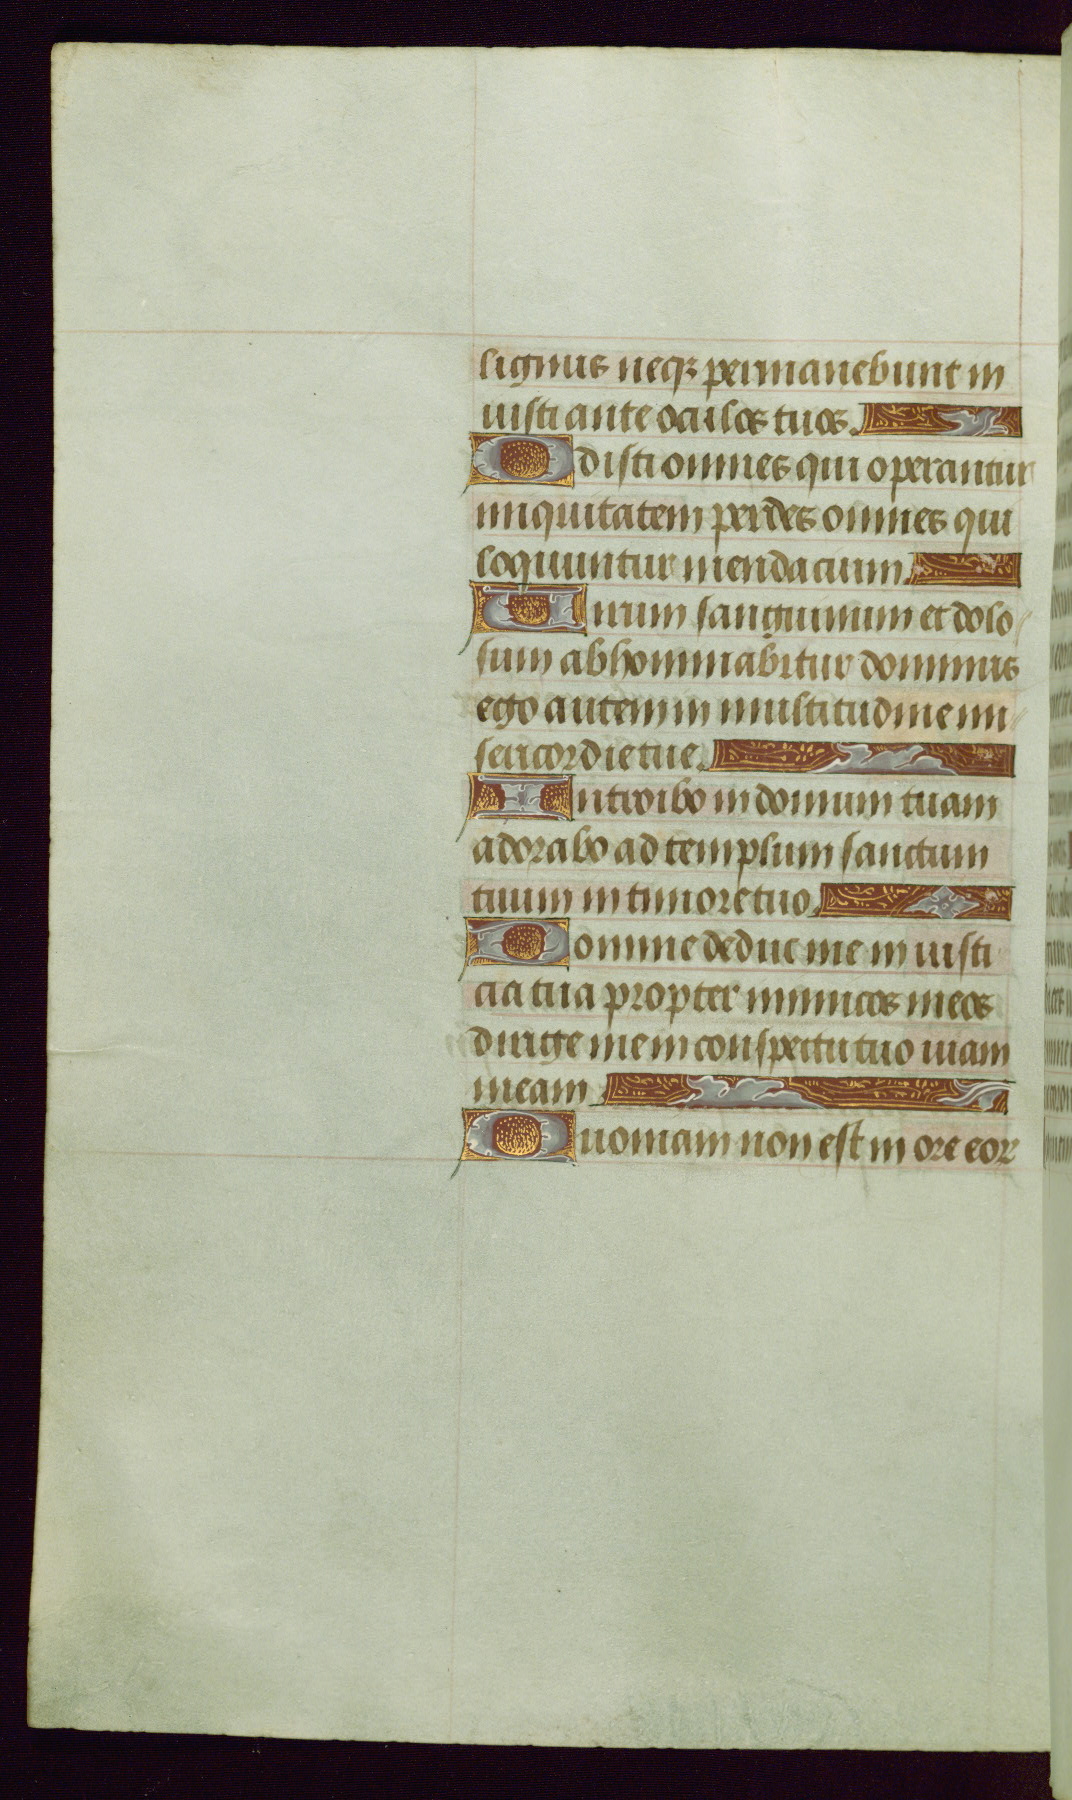 lignus neqꝫ permanebunt in
iusti ante oculos tuos.
Odisti omnes qui operantur
iniquitatem perdes omnes qui
loquuntur mendacium.
Uirum sanguinum et dolo
sum abhominabitur dominus
ego autem in multitudine mi
sericordie tue.
Introibo in domum tuam
adorabo ad templum sanctum
tuum in timore tuo.
Domine deduc me in iusti
cia tua propter inimicos meos
dirige me in conspectu tuo uiam
meam.
Quoniam non est in ore eoꝝ